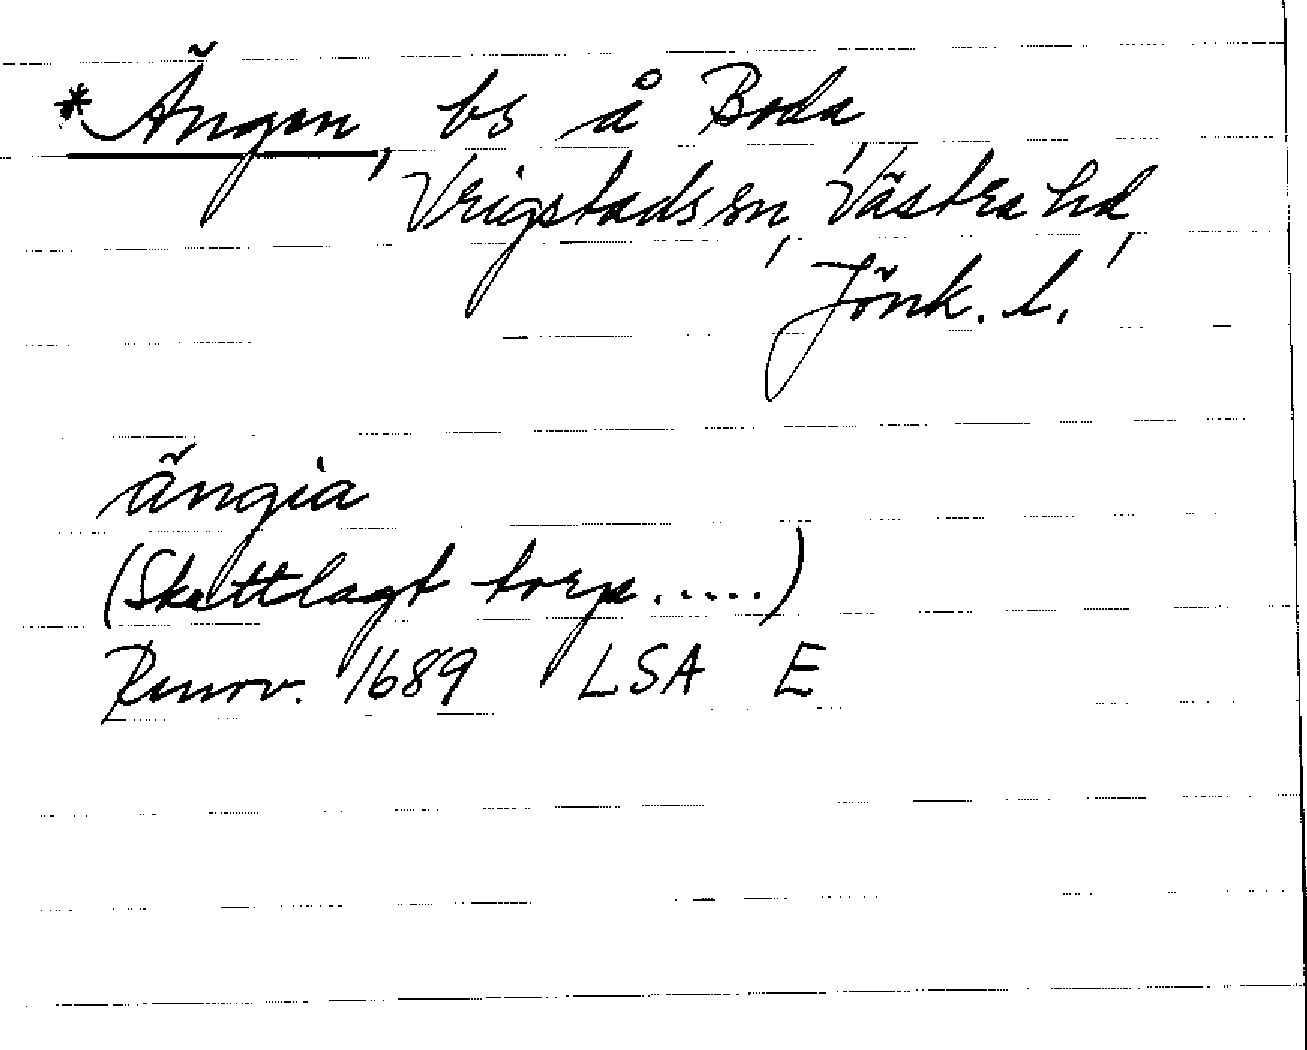 *Ängen, bs å Boda,
Vrigstads sn, Västra hd,
Jönk. l.
ängia
(Skattlagt torp.....)
Renov. 1689 LSA E